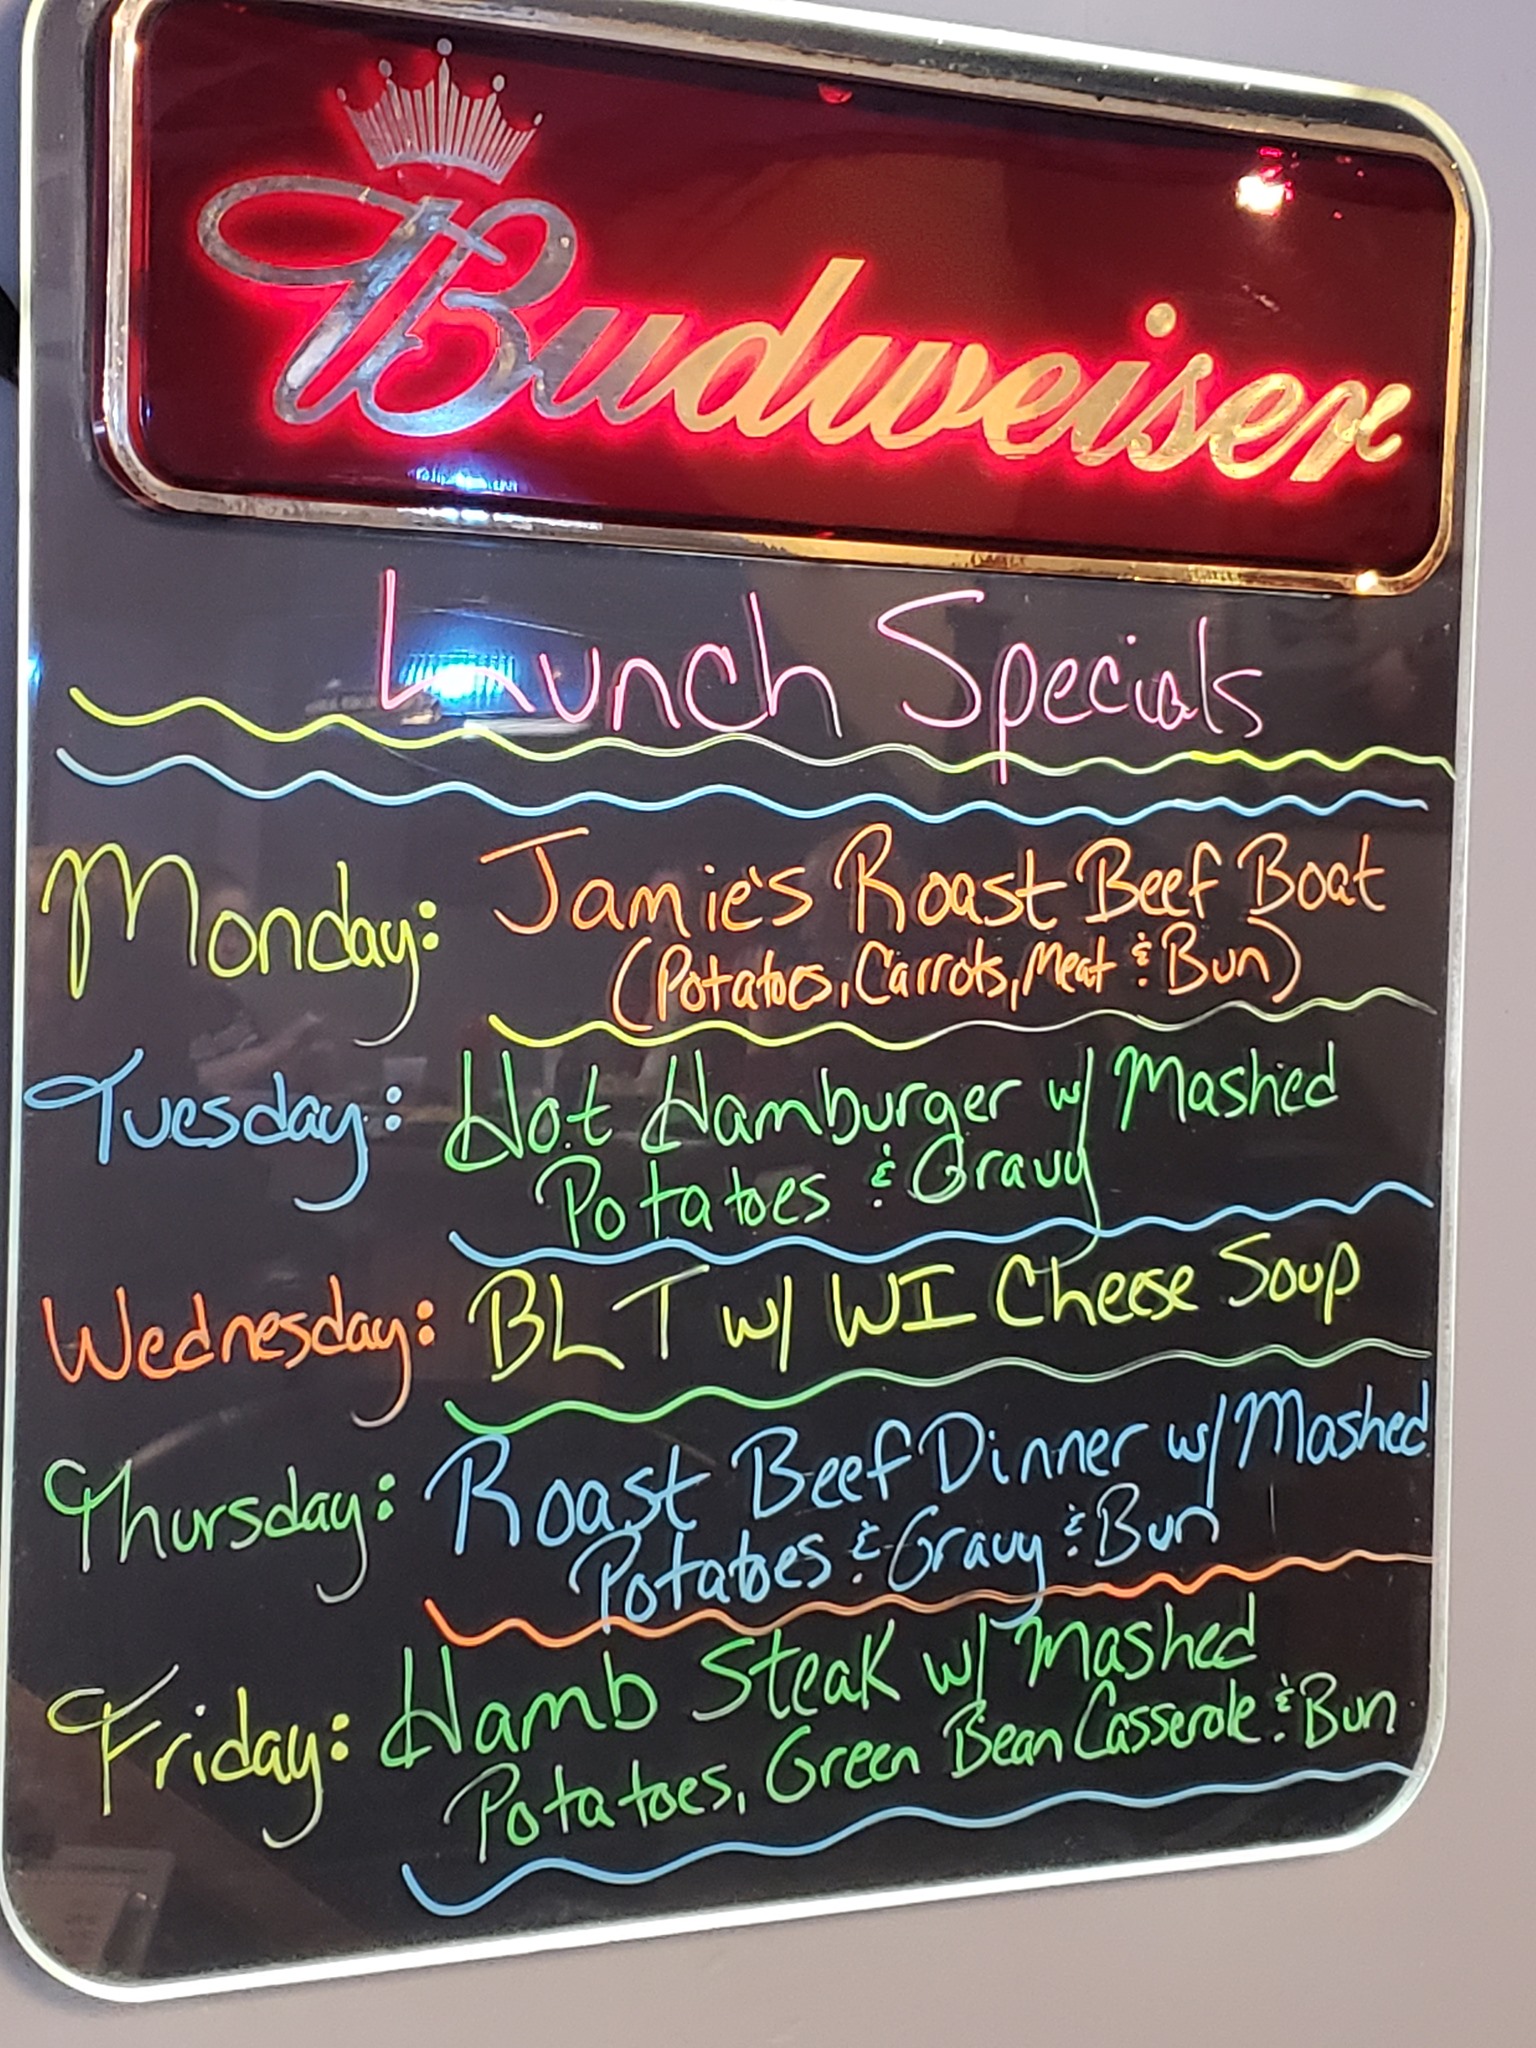 Budweiser
Lunch Specials
Monday: Jamie's Roast Beef Boat
(Potatoes, Carrots, Meat & Bun)
Tuesday: Hot Hamburger w/ Mashed
Potatoes & Gravy
Wednesday: BLT w/ WI Cheese Soup
Thursday: Roast Beef Dinner w/ Mashed
Potatoes & Gravy & Bun
Friday: Hamb Steak w/ Mashed
Potatoes, Green Bean Casserole & Bun